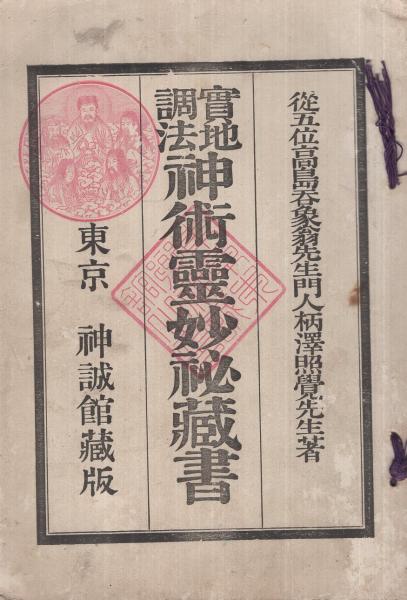 從五位高島呑象翁先生門人柄澤照覺先生著
實地調法神術靈妙祕藏書
東京 神誠館藏版